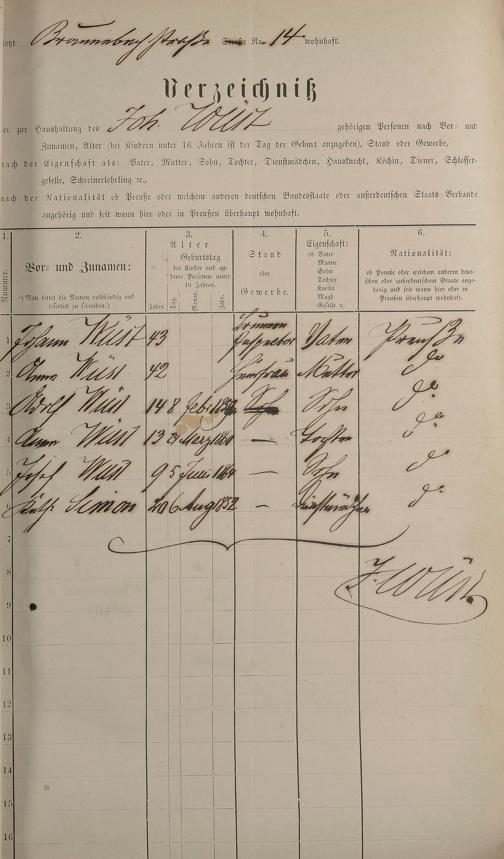 jetzt Straße No. 14 wohnhaft.
Verzeichniß
der zur Haushaltung des Joh. Wüst gehörigen Personen nach Vor- und
Zunamen, Alter (bei Kindern unter 16 Jahren ist der Tag der Geburt anzugeben), Stand oder Gewerbe,
nach der Eigenschaft als: Vater, Mutter, Sohn, Tochter, Dienstmädchen, Hausknecht, Köchin, Diener, Schlosser-
geselle, Schreinerlehrling ꝛc.,
nach der Nationalität ob Preuße oder welchem anderen deutschen Bundesstaate oder außerdeutschen Staats-Verbande
angehörig und seit wann hier oder in Preußen überhaupt wohnhaft.
1. 2. 3. 4. 5. 6.
Nummer. Vor- und Zunamen: Alter Stand oder Gewerbe. Eigenschaft: Nationalität:
(Man bittet die Namen vollständig und leserlich zu schreiben.)
Geburtstag der Kinder und anderer Personen unter 16 Jahren.
Jahre. Tag. Monat. Jahr.
ob Vater Mutter Sohn Tochter Knecht Magd Geselle ꝛc.
ob Preuße oder welchem anderen deutschen oder außerdeutschen Staate angehörig und seit wann hier oder in Preußen überhaupt wohnhaft.
1 Johann Wüst 43 Vater Preuße
2 Anna Wüst 42 Hausfrau Mutter do
3 Adolf Wüst 14 8 Febr Sohn Sohn do
4 Anna Wüst 13 März 1860 — Tochter do
5 Josef Wüst 9 5 Juni 1864 — Sohn do
6 Kath. Simon 20 6 Aug 1852 — Dienstmädchen do
7
8
J. Wüst.
9
10
11
12
13
14
15
16